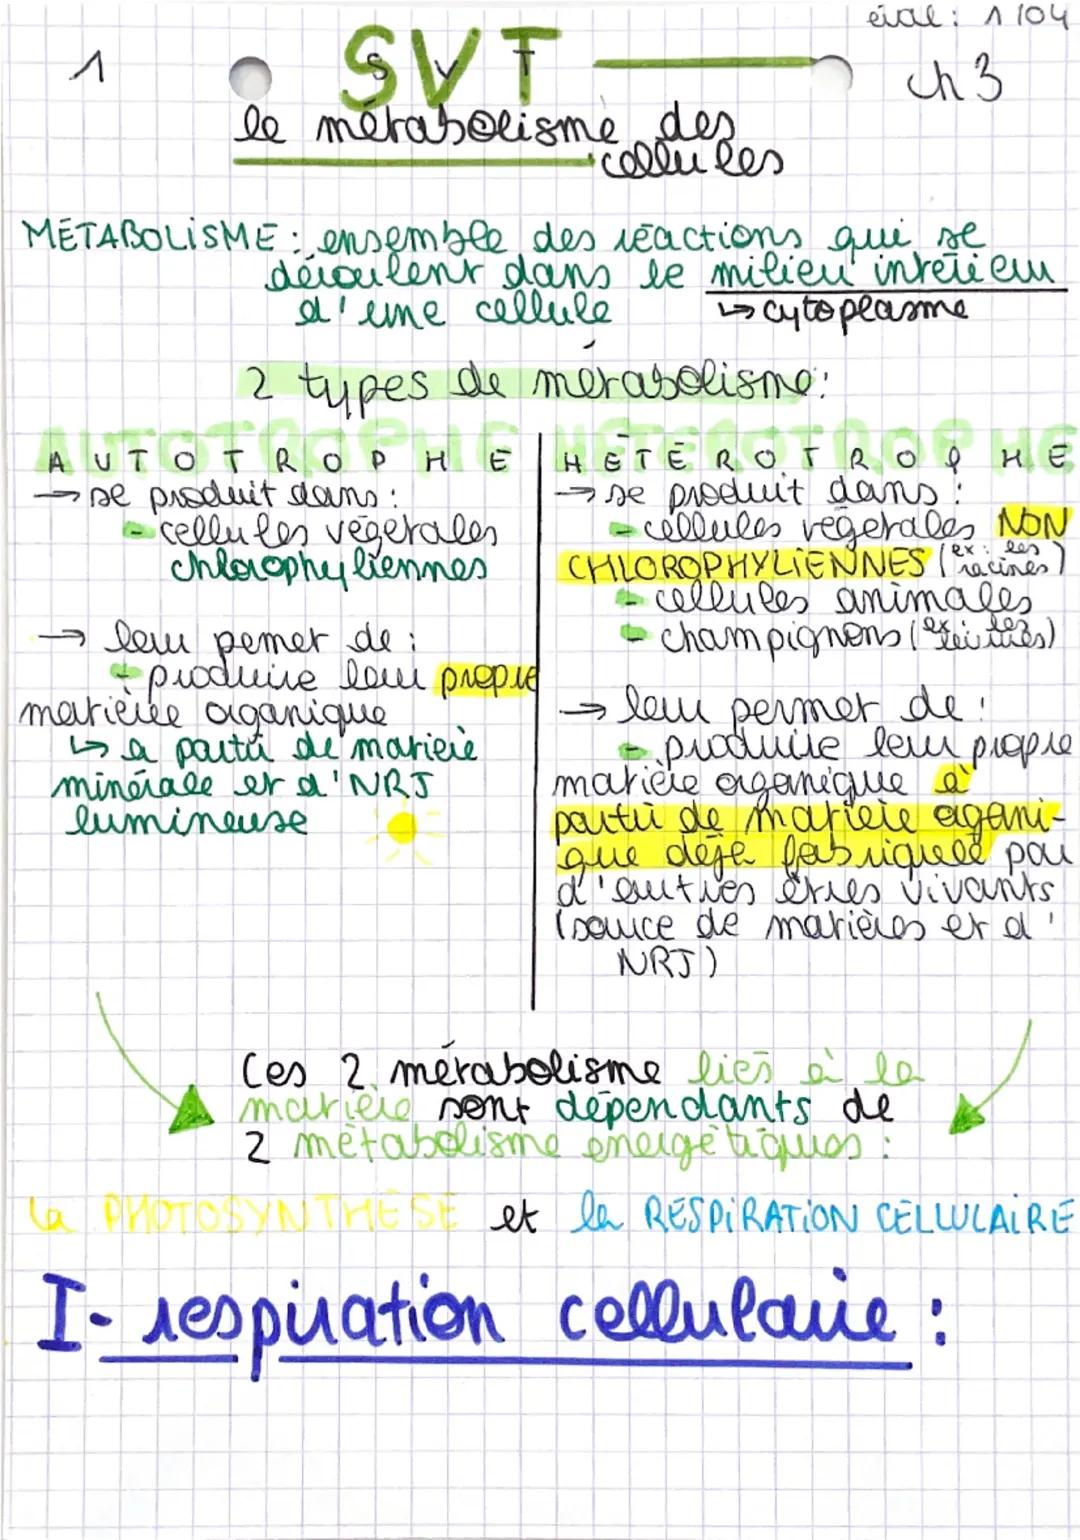 éval : 1/04
1
SVT
ch 3
le métabolisme des
cellules
MÉTABOLISME : ensemble des réactions qui se
déroulent dans le milieu intérieur
d'une cellule ↳ cytoplasme
2 types de métabolisme :
AUTOTROPHE
→ se produit dans :
- cellules végétales
chlorophyliennes
→ leur pemet de :
- produire leur propre
matière organique
↳ a partir de matière
minérale et d'NRJ
lumineuse
HÉTÉROTROPHE
→ se produit dans :
- cellules végétales NON
CHLOROPHYLIENNES (ex : les racines)
- cellules animales
- champignons (ex : les levures)
→ leur permet de :
- produire leur propre
matière organique à
partir de matière organi-
que déjà fabriquée par
d'autres êtres vivants
(source de matières et d'
NRJ)
Ces 2 métabolisme liés à la
matière sont dépendants de
2 métabolisme énergétiques :
la PHOTOSYNTHÈSE et la RESPIRATION CELLULAIRE
I- respiration cellulaire :